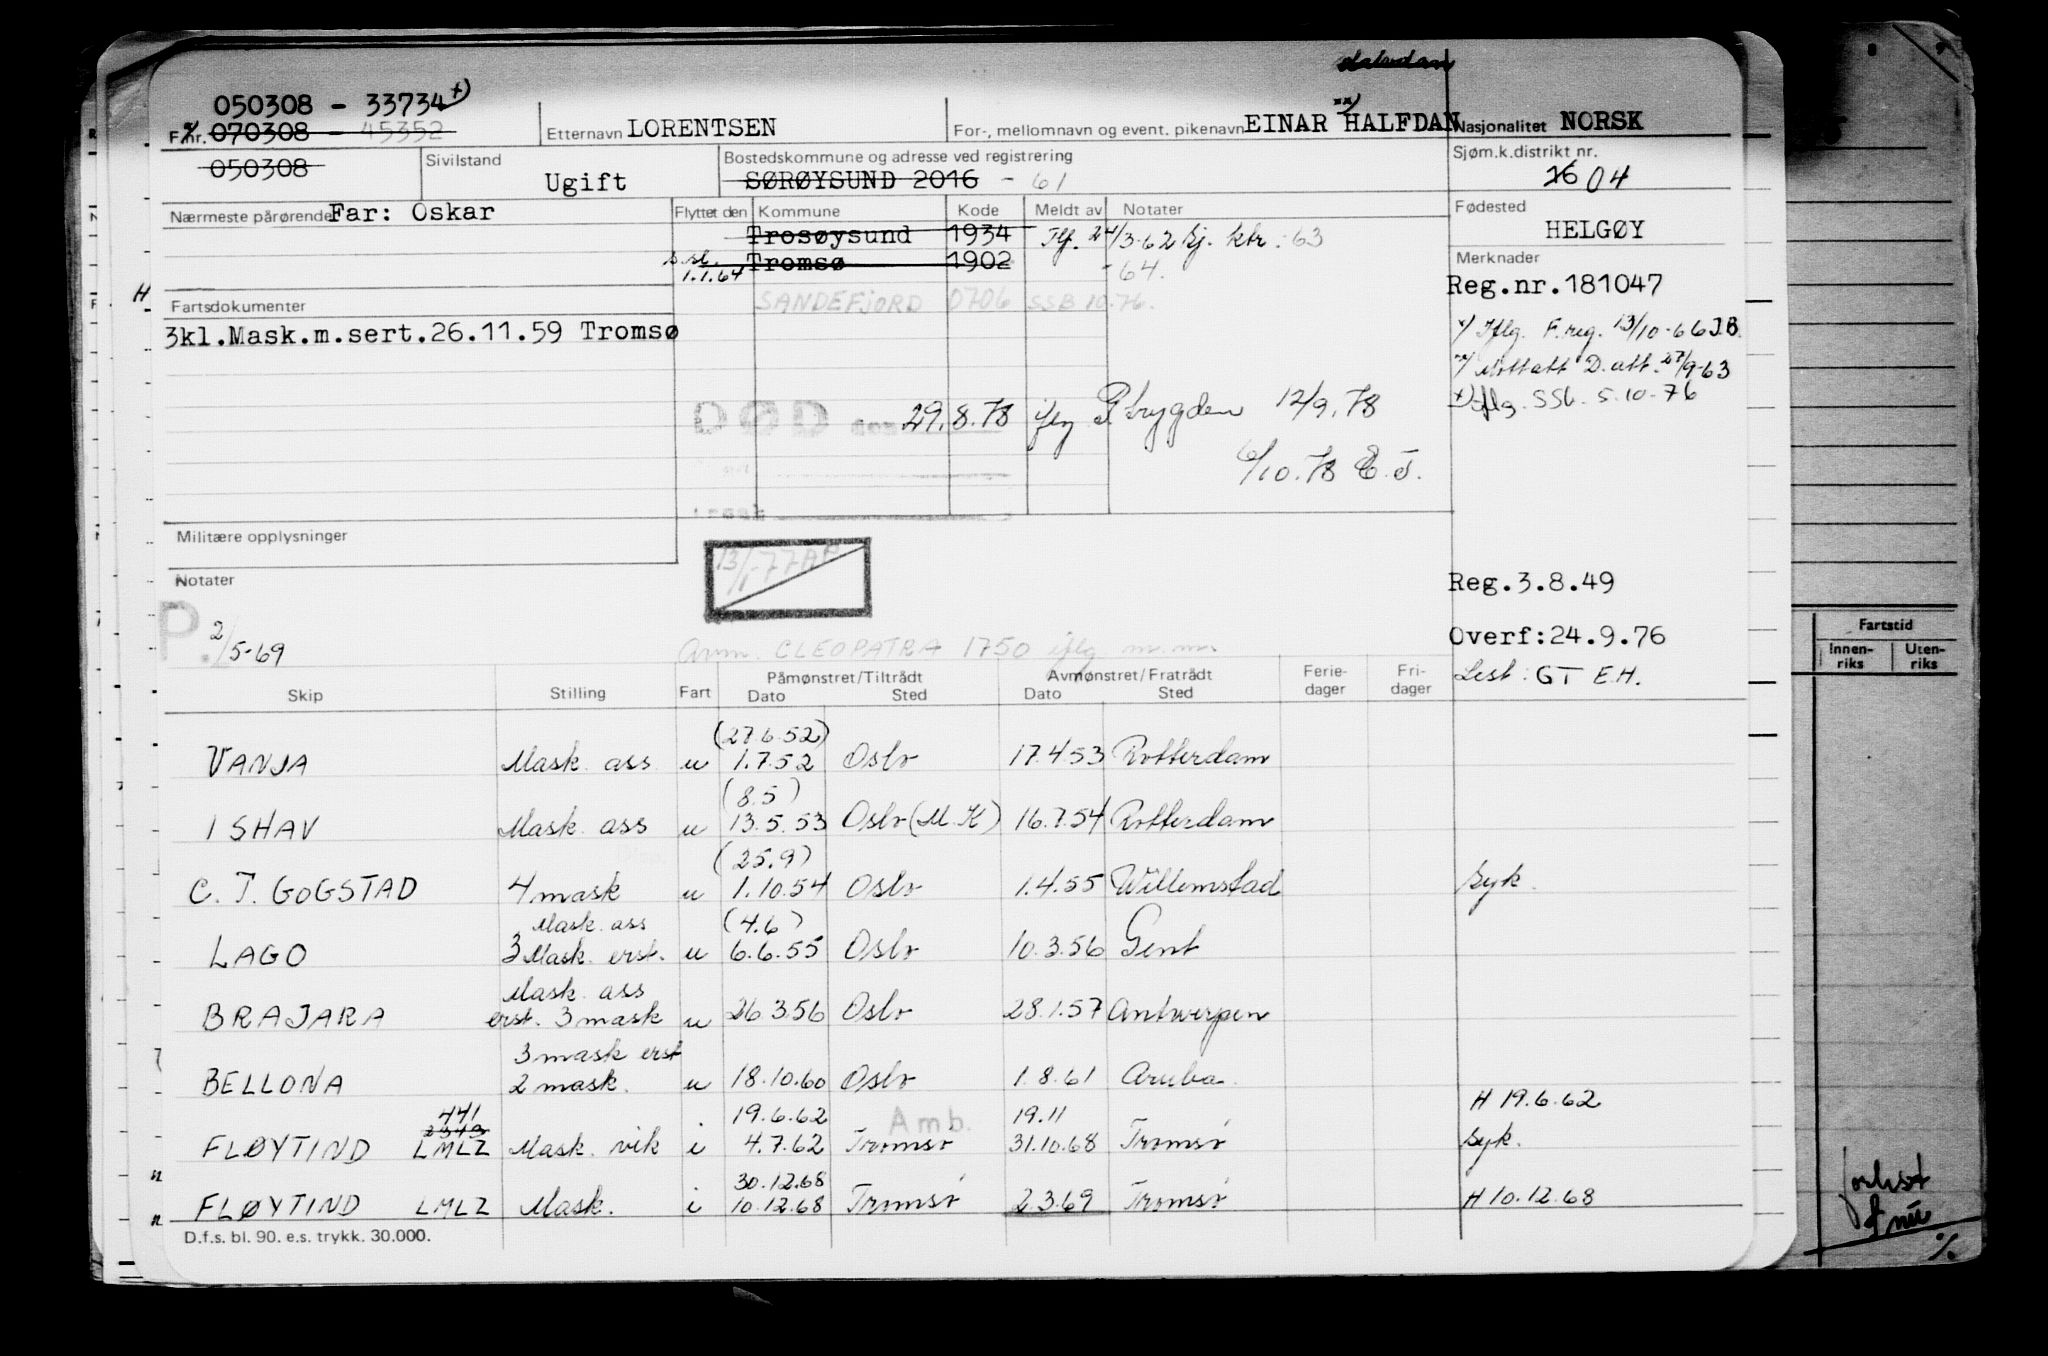 050308 - 33734 x)
F.nr. 070308 - 45352 Etternavn LORENTSEN For-, mellomnavn og event. pikenavn EINAR xx) HALFDAN Nasjonalitet NORSK
050308 Sivilstand Ugift Bostedskommune og adresse ved registrering SØRØYSUND 2016 - 61 Sjøm.k.distrikt nr. 16 04
Nærmeste pårørende Far: Oskar Flyttet den Kommune Kode Meldt av Notater Fødested
Trosøysund 1934 Tlf. 24/3-62 Sj. ktr. -63 HELGØY
1.1.64 Tromsø 1902 -64. Merknader
H Reg.nr.181047
Fartsdokumenter SANDEFJORD 0706 SSB 10.76.
3kl.Mask.m.sert.26.11.59 Tromsø x/ Iflg. F.reg. 13/10-66 J.B.
xx/ Mottatt D.att. 27/9-63
x) Iflg. SSb. 5.10-76
DØD den 29.8.78 iflg P.trygden 12/9.78
6/10.78 E.J.
Militære opplysninger
13/1-77 AP
Notater Reg.3.8.49
P. 2/5-69 Overf:24.9.76
Anm. CLEOPATRA 1750 iflg m.m. Lest: GT E.H.
Skip Stilling Fart Påmønstret/Tiltrådt Dato Sted Avmønstret/Fratrådt Dato Sted Ferie-dager Fri-dager
(27.6.52)
VANJA Mask. ass u 1.7.52 Oslo 17.4.53 Rotterdam
(8.5)
ISHAV Mask. ass u 13.5.53 Oslo (M.K) 16.7.54 Rotterdam
(25.9)
C. T. GOGSTAD 4 mask u 1.10.54 Oslo 1.4.55 Willemstad Syk.
Mask. ass (4.6)
LAGO 3 Mask. erst. u 6.6.55 Oslo 10.3.56 Gent
Mask. ass
BRAJARA erst. 3 mask u 26.3.56 Oslo 28.1.57 Antwerpen
3 mask erst
BELLONA 2 mask. u 18.10.60 Oslo 1.8.61 Aruba
441 19.6.62 Amb. 19.11 H 19.6.62
FLØYTIND LMLZ Mask. vik i 4.7.62 Tromsø 31.10.68 Tromsø Syk.
30.12.68
FLØYTIND LMLZ Mask. i 10.12.68 Tromsø 2.3.69 Tromsø H 10.12.68
D.f.s. bl. 90. e.s. trykk. 30.000.
Fartstid
Innen-riks Uten-riks